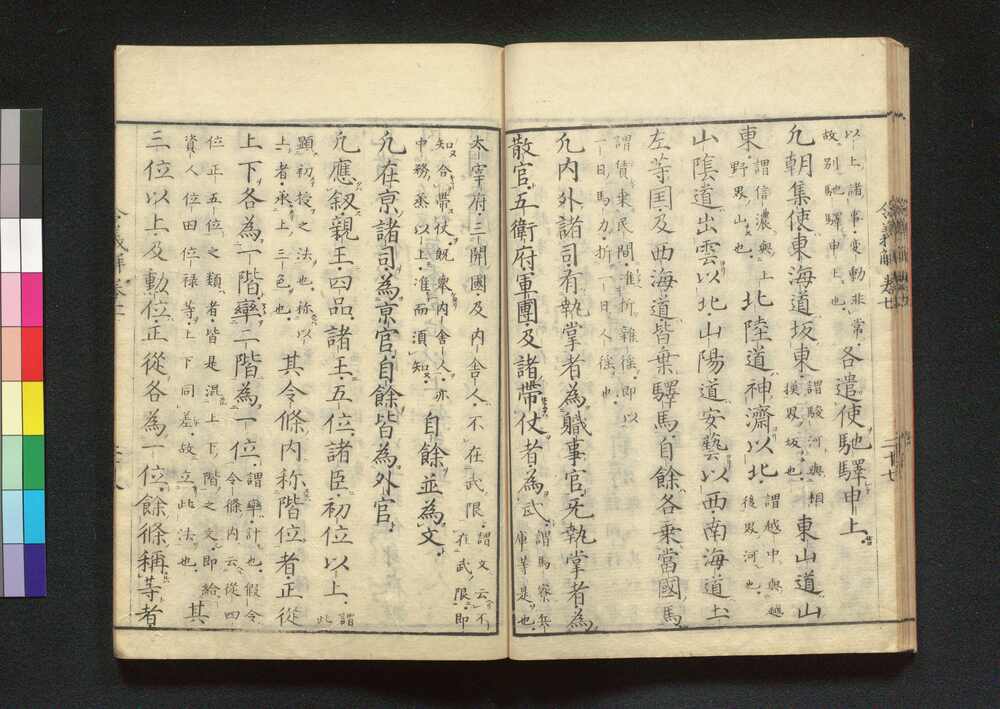 以上諸事変動非常
故別馳驛申上也
各遣使馳驛申上
凢朝集使東海道坂東
謂駿河與相
摸界坂也
東山道山
東
謂信濃與上
野界山也
北陸道神濟以北
謂越中與越
後界河也
山隂道出雲以北山陽道安藝以西南海道土
左等国及西海道皆乗驛馬自餘各乗當國馬
謂債乗民間准折雜徭即以
一日馬力折一日人徭也
凢内外諸司有執掌者為軄事官旡執掌者為
散官五衛府軍團及諸帶仗者為武
謂馬寮兵
庫等是也
令義解 卷七
二十七
太宰府三關國及内舎人不在武限
謂文云不
在武限即
知合帶仗既衆内舎人亦
中務丞以上准而須知
自餘並為文
凢在京諸司為京官自餘皆為外官
凢應叙親王四品諸王五位諸臣初位以上
謂
此
顯初授之法也称以
上者承上三色也
其令條内称階位者正從
上下各為一階率二階為一位
謂率計也假令
令條内云從四
位正五位之類者皆是混上下階之文即給
資人位田位禄等上下同差故立此法也
其
三位以上及勳位正從各為一位餘條稱等者